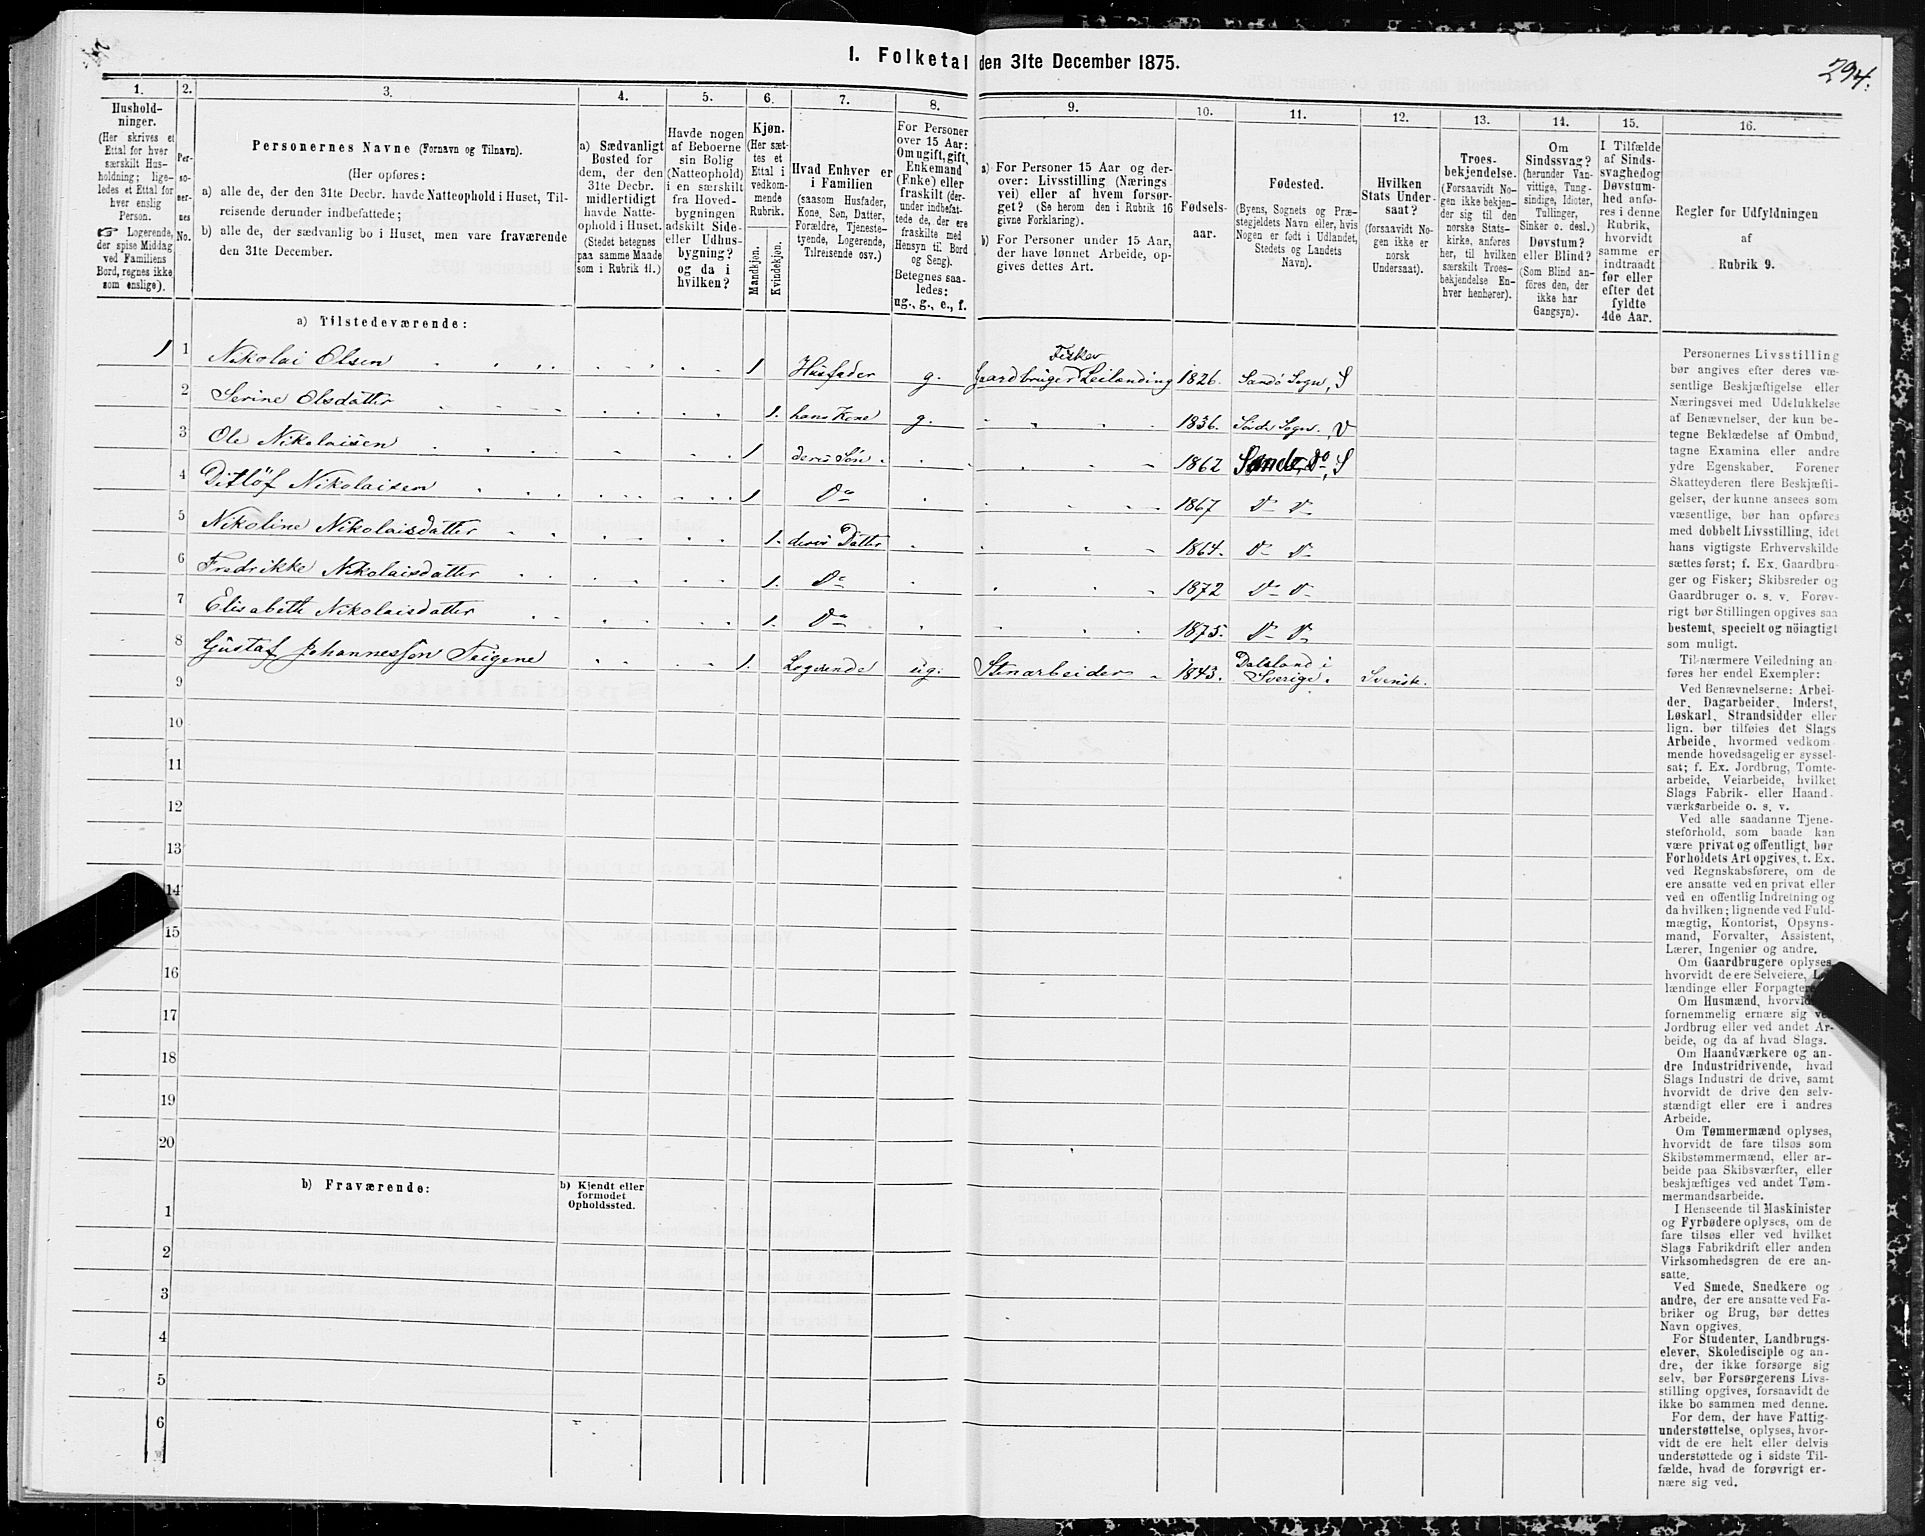 1. Folketal den 31te December 1875.
294.
1. 2. 3. 4. 5. 6. 7. 8. 9. 10. 11. 12. 13. 14. 15. 16.
Hushold-
ninger.
(Her skrives et
Ettal for hver
særskilt Hus-
holdning; lige-
ledes et Ettal for
hver enslig
Person.
☞ Logerende,
der spise Middag
ved Familiens
Bord, regnes ikke
som enslige).
Per-
so-
ner-
nes
No.
Personernes Navne (Fornavn og Tilnavn).
(Her opføres:
a) alle de, der den 31te Decbr. havde Natteophold i Huset, Til-
reisende derunder indbefattede;
b) alle de, der sædvanlig bo i Huset, men vare fraværende
den 31te December.
a) Sædvanligt
Bosted for
dem, der den
31te Decbr.
midlertidigt
havde Natte-
ophold i Huset.
(Stedet betegnes
paa samme Maade
som i Rubrik 11.)
Havde nogen
af Beboerne
sin Bolig
(Natteophold)
i en særskilt
fra Hoved-
bygningen
adskilt Side-
eller Udhus-
bygning?
og da i
hvilken?
Kjøn.
(Her sæt-
tes et
Ettal i
vedkom-
mende
Rubrik.
Mandkjøn.
Kvindekjøn.
Hvad Enhver er
i Familien
(saasom Husfader,
Kone, Søn, Datter,
Forældre, Tjeneste-
tyende, Logerende,
Tilreisende osv.)
For Personer
over 15 Aar:
Om ugift, gift,
Enkemand
(Enke) eller
fraskilt (der-
under indbefat-
tede de, der ere
fraskilte med
Hensyn til Bord
og Seng).
Betegnes saa-
ledes:
ug., g., e., f.
a) For Personer 15 Aar og der-
over: Livsstilling (Nærings
vei) eller af hvem forsør-
get? (Se herom den i Rubrik 16
givne Forklaring).
b) For Personer under 15 Aar,
der have lønnet Arbeide, op-
gives dettes Art.
Fødsels-
aar.
Fødested.
(Byens, Sognets og Præ-
stegjeldets Navn eller, hvis
Nogen er født i Udlandet,
Stedets og Landets
Navn).
Hvilken
Stats Under-
saat?
(forsaavidt No-
gen ikke er
norsk
Undersaat).
Troes-
bekjendelse.
(Forsaavidt No-
gen ikke bekjen-
der sig til den
norske Stats-
kirke, anføres
her, til hvilken
særskilt Troes-
bekjendelse En-
hver henhører).
Om
Sindssvag?
(herunder Van-
vittige, Tung-
sindige, Idioter,
Tullinger,
Sinker o. desl.)
Døvstum?
eller Blind?
(Som Blind an-
føres den, der
ikke har
Gangsyn).
I Tilfælde
af Sinds-
svaghed og
Døvstum-
hed anfø-
res i denne
Rubrik,
hvorvidt
samme er
indtraadt
før eller
efter det
fyldte
4de Aar.
Regler for Udfyldningen
af
Rubrik 9.
a) Tilstedeværende:
1 1 Nikolai Olsen 1 Husfader g. Fisker Gaardbruger Leilænding 1826. Sandø Sogn, S
2 Serine Olsdatter 1. hans Kone g. 1836. Sogn., V
3 Ole Nikolaisen 1 deres Søn. 1862 Sandø, Do, S
4 Ditløf Nikolaisen 1 Do 1867 D D
5 Nikoline Nikolaisdatter 1. deres Datter 1864. D D
6 Fredrikke Nikolaisdatter 1. Do 1872 D D
7 Elisabeth Nikolaisdatter 1. Do 1875. D D
8 Gustaf Johannesson Teigene 1. Logerende ug. Stenarbeider 1843. Dalsland i Sverige. Svensk.
9
10
11
12
13
14
15
16
17
18
19
20
b) Fraværende:
b) Kjendt eller
formodet
Opholdssted.
1
2
3
4
5
6
Personernes Livsstilling
bør angives efter deres væ-
sentlige Beskjæftigelse eller
Næringsvei med Udelukkelse
af Benævnelser, der kun be-
tegne Beklædelse af Ombud,
tagne Examina eller andre
ydre Egenskaber. Forener
Skatteyderen flere Beskjæfti-
gelser, der kunne ansees som
væsentlige, bør han opføres
med dobbelt Livsstilling, idet
hans vigtigste Erhvervskilde
sættes først; f. Ex. Gaardbru-
ger og Fisker; Skibsreder og
Gaardbruger o. s. v. Forøv-
rigt bør Stillingen opgives saa
bestemt, specielt og nöiagtigt
som muligt.
Til nærmere Veiledning an-
føres her endel Exempler:
Ved Benævnelserne: Arbei-
der, Dagarbeider, Inderst,
Løskarl, Strandsidder eller
lign. bør tilføies det Slags
Arbeide, hvormed vedkom-
mende hovedsagelig er syssel-
sat; f. Ex. Jordbrug, Tomte-
arbeide, Veiarbeide, hvilket
Slags Fabrik- eller Haand-
værksarbeide o. s. v.
Ved alle saadanne Tjene-
steforhold, som baade kan
være privat og offentligt, bør
Forholdets Art opgives, t. Ex.
ved Regnskabsførere, om de
ere ansatte ved en privat eller
ved en offentlig Indretning og
da hvilken; lignende ved Fuld-
mægtig, Kontorist, Opsyns-
mand, Forvalter, Assistent,
Lærer, Ingeniør og andre.
Om Gaardbrugere oplyses,
hvorvidt de ere Selveiere, Lei-
lændinge eller Forpagtere.
Om Husmænd, hvorvidt
fornemmelig ernære sig ved
Jordbrug eller ved andet Ar-
beide, og da af hvad Slags.
Om Haandværkere og an-
dre Industridrivende, hvad
Slags Industri de drive, samt
hvorvidt de drive den selv-
stændigt eller ere i andres
Arbeide.
Om Tømmermænd oplyses,
hvorvidt de fare tilsøs som
Skibstømmermænd, eller ar-
beide paa Skibsværfter, eller
beskjæftiges ved andet Tøm-
mermandsarbeide.
I Henseende til Maskinister
og Fyrbødere oplyses, om de
fare tilsøs eller ved hvilket
Slags Fabrikdrift eller anden
Virksomhedsgren de ere an-
satte.
Ved Smede, Snedkere og
andre, der ere ansatte ved Fa-
briker og Brug, bør dettes
Navn opgives.
For Studenter, Landbrugs-
elever, Skoledisciple og an-
dre, der ikke forsørge sig
selv, bør Forsørgerens Livs-
stilling opgives, forsaavidt de
ikke bo sammen med denne.
For dem, der have Fattig-
understøttelse, oplyses, hvor-
vidt de ere helt eller delvis
understøttede og i sidste Til-
fælde, hvad de forøvrigt er-
nære sig ved.